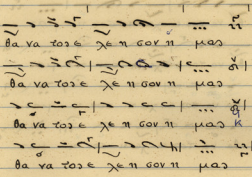 θα να τος ε λε η σον η μας
θα να τος ε λε η σον η μας
θα να τος ε λε η σον η μας
θα να τος ε λε η σον η μας